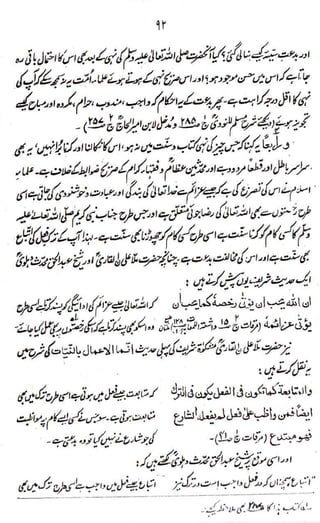 ۹۲
اور بدعتِ سیئہ کیسے بنالی گئی؟ کیا آنحضرت صلی اللہ تعالیٰ علیہ وسلم کی نہی کے بعد بھی اس کا احتمال باقی رہ
جاتا ہے کہ اس میں حسن موجود ہو؟ اور اس صریح نہی کے ہوتے ہوئے علماءِ امت یہ دیکھیں گے کہ آپ کی
نہی کا اقل درجہ کراہت ہے۔ پھر بدعت کے یہ احکام کہ واجب، مندوب، حرام، مکروہ اور مباح کیسے
تجویز ہوئے (دیکھئے شرح مسلم للنووی ج ۱ ص ۲۸۵ و مدخل لابن امیر الحاج ج ۲ ص ۲۵۷)۔
و رابعاً یہ کہنا کہ جس چیز کی نہی کتاب و سنت میں نہ ہو، اس کا نکالنا اور کرنا بُرا نہیں، یہ بھی
سراسر باطل اور قطعاً مردود ہے اور محدثین عظام و فقہاء کرام کے صریح ضوابط کے خلاف ہے۔ علماءِ
اسلام نے اس کی تصریح کی ہے کہ جیسے عزائم سے خدا تعالیٰ کی بندگی اور عبادت و خوشنودی کی جاتی ہے اسی
طرح رخصتوں سے بھی اللہ تعالیٰ کی رضا جوئی متعلق ہے اور جس طرح جناب نبی کریم صلی اللہ تعالیٰ علیہ
وسلم کا کسی کام کو کرنا سنت ہے اسی طرح کسی کام کو چھوڑنا بھی سنت ہے۔ لہٰذا آپ کے ترکِ فعل کی اتباع
بھی سنت ہے اور اس کی مخالفت بدعت ہے۔ چنانچہ حضرت ملا علی ن القاریؒ اور شیخ عبدالحق محدث دہلویؒ
ایک حدیث شریف یوں پیش کرتے ہیں:
ان اللہ یحب ان یؤتی رخصہ کما یحب ان کہ اللہ تعالیٰ جیسے عزائم کی ادائیگی کو پسند کرتا ہے اسی طرح
یؤتی عزائمہ (مرقات ج ۲ ص ۱۵ و اشعۃ اللمعات ج ۱ ص ۱۲۸) وہ اسکو بھی پسند کرتا ہے کہ اسکی رخصتوں پر بھی عمل کیا جائے
نیز حضرت ملا علی ن القاریؒ مشکوٰۃ شریف کی پہلی حدیث انما الاعمال بالنیات کی شرح میں
یہ نقل کرتے ہیں:
والمتابعۃ کما تکون فی الفعل یکون فی الترک کہ متابعت جیسے فعل میں ہوتی ہے اسی طرح ترک میں بھی
ایضاً فمن واظب علیٰ فعل لم یفعلہ الشارع متابعت ہوتی ہے۔ سو جس نے کسی ایسے کام پر مواظبت
فھو مبتدع (مرقات ج ۱ ص ۴۱)۔ کی جو شارع نے نہیں کیا تو وہ بدعتی ہے۔
اور اسی موقع پر شیخ عبدالحق محدث دہلویؒ لکھتے ہیں کہ:
اتباع ہمچناں کہ در فعل واجب است در ترک نیز اتباع جیسے فعل میں واجب ہے اسی طرح ترک میں بھی